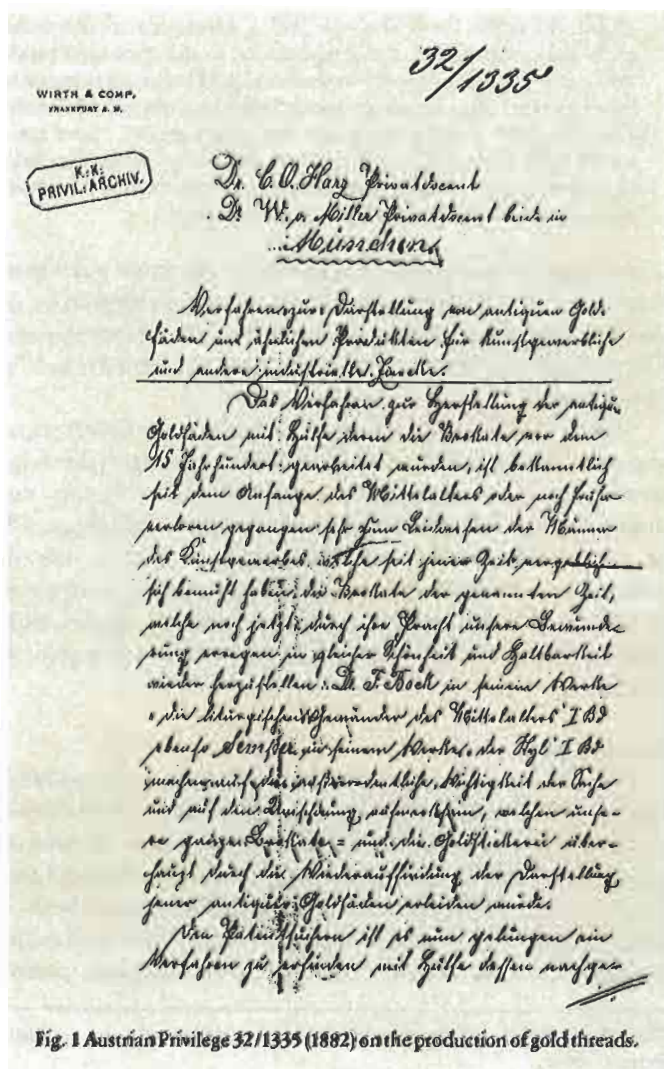 32/1335
WIRTH & COMP.
FRANKFURT A. M.
K: K:
PRIVIL: ARCHIV.
Dr. C. O. Harz Privatdocent
Dr W. v. Miller Privatdocent beide in
München
Verfahren zur Darstellung von antiquen Gold-
fäden und ähnlichen Produkten für kunstgewerbliche
und andere industrielle Zwecke.
Das Verfahren zur Herstellung der antiquen
Goldfäden mit Hülfe deren die Brokate vor dem
15 Jahrhundert gearbeitet wurden, ist bekanntlich
seit dem Anfange des Mittelalters oder noch früher
verloren gegangen sehr zum Leidwesen der Männer
des Kunstgewerbes, welche seit jener Zeit vergeblich
sich bemüht haben, die Brokate der genannten Zeit,
welche noch jetzt durch ihre Pracht unsere Bewunde-
rung erregen in gleicher Schönheit und Haltbarkeit
wieder herzustellen. Dr. F. Bock in seinem Werke
"die liturgischen Gewänder des Mittelalters" I Bd
ebenso Semper in seinem Werke "der Styl" I Bd
machen auf die außerordentliche Wichtigkeit der Sache
und auf den aufmerksam, welchen unse-
re ganze Brokate = und die Goldstickerei über-
haupt durch die Wiederauffindung der Darstellung
jener antiquen Goldfäden erleiden würde.
Den Patentsuchern ist es nun gelungen ein
Verfahren zu erfinden mit Hülfe dessen nachge-
Fig. 1 Austrian Privilege 32/1335 (1882) on the production of gold threads.